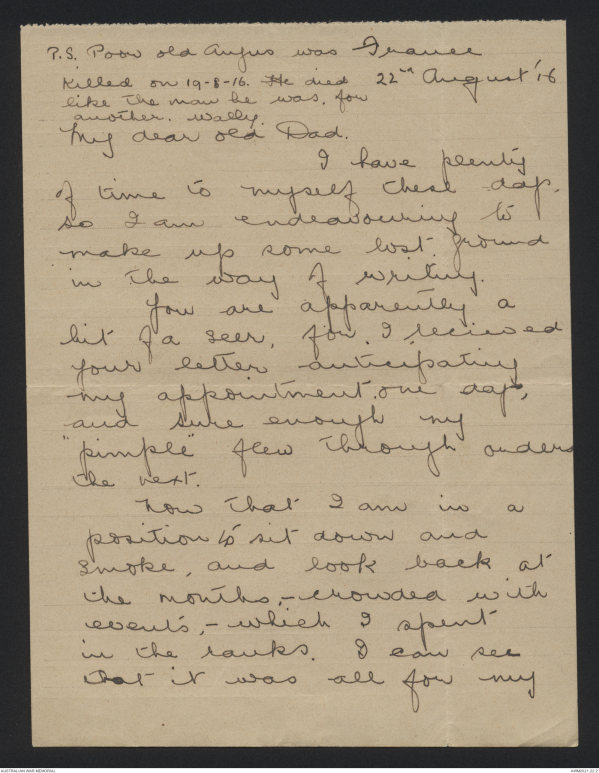 P.S. Poor old Angus was
killed on 19-8-16. He died
like the man he was, for
another. Wally.
France
22nd August '16
My dear old Dad.
I have plenty
of time to myself these days,
so I am endeavouring to
make up some lost ground
in the way of writing.
You are apparently a
bit of a seer, for, I recieved
your letter anticipating
my appointment, one day,
and sure enough my
"pimple" flew through orders
the next.
Now that I am in a
position to sit down and
smoke, and look back at
the months, - crowded with
events, - which I spent
in the ranks. I can see
that it was all for my
AUSTRALIAN WAR MEMORIAL